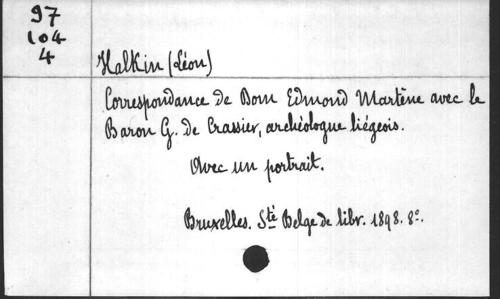 97
104
4
Halkin (Léon)
Correspondance de Dom Edmond Martène avec le
Baron G. de Crassier, archéologue liégeois.
Avec un portrait.
Bruxelles. Sté Belge de libr. 1898. 8º.